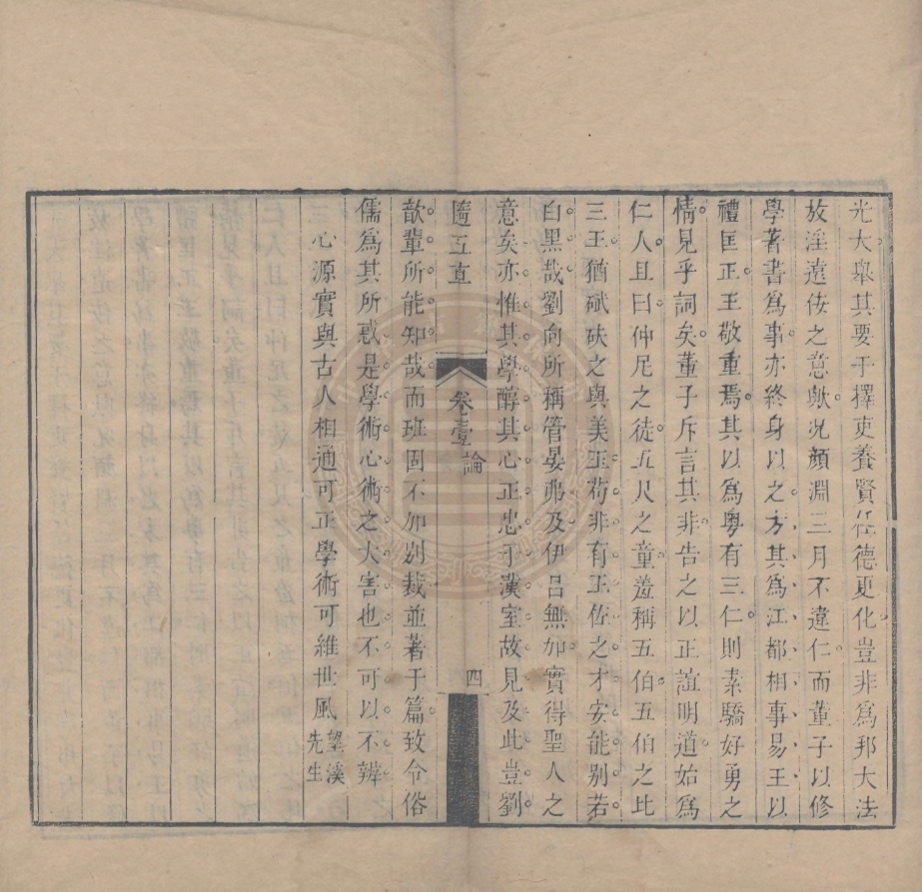 光大舉其要于擇吏養賢任德更化豈非爲邦大法
放淫遠佞之意歟况顏淵三月不違仁而董子以修
學著書爲事亦終身以之方其爲江都相事易王以
禮匡正王敬重焉其以爲粵有三仁則素驕好勇之
情見乎詞矣董子斥言其非告之以正誼明道始爲
仁人且曰仲尼之徒五尺之童羞稱五伯五伯之比
三王猶碔砆之與美玉苟非有王佐之才安能别若
白黑哉劉向所稱管晏弗及伊呂無加實得聖人之
意矣亦惟其學醇其心正忠于漢室故見及此豈劉
隨五草 卷壹 論 四
歆輩所能知哉而班固不加别裁並著于篇致令俗
儒爲其所惑是學術心術之大害也不可以不辨
心源實與古人相通可正學術可維世風望溪先生